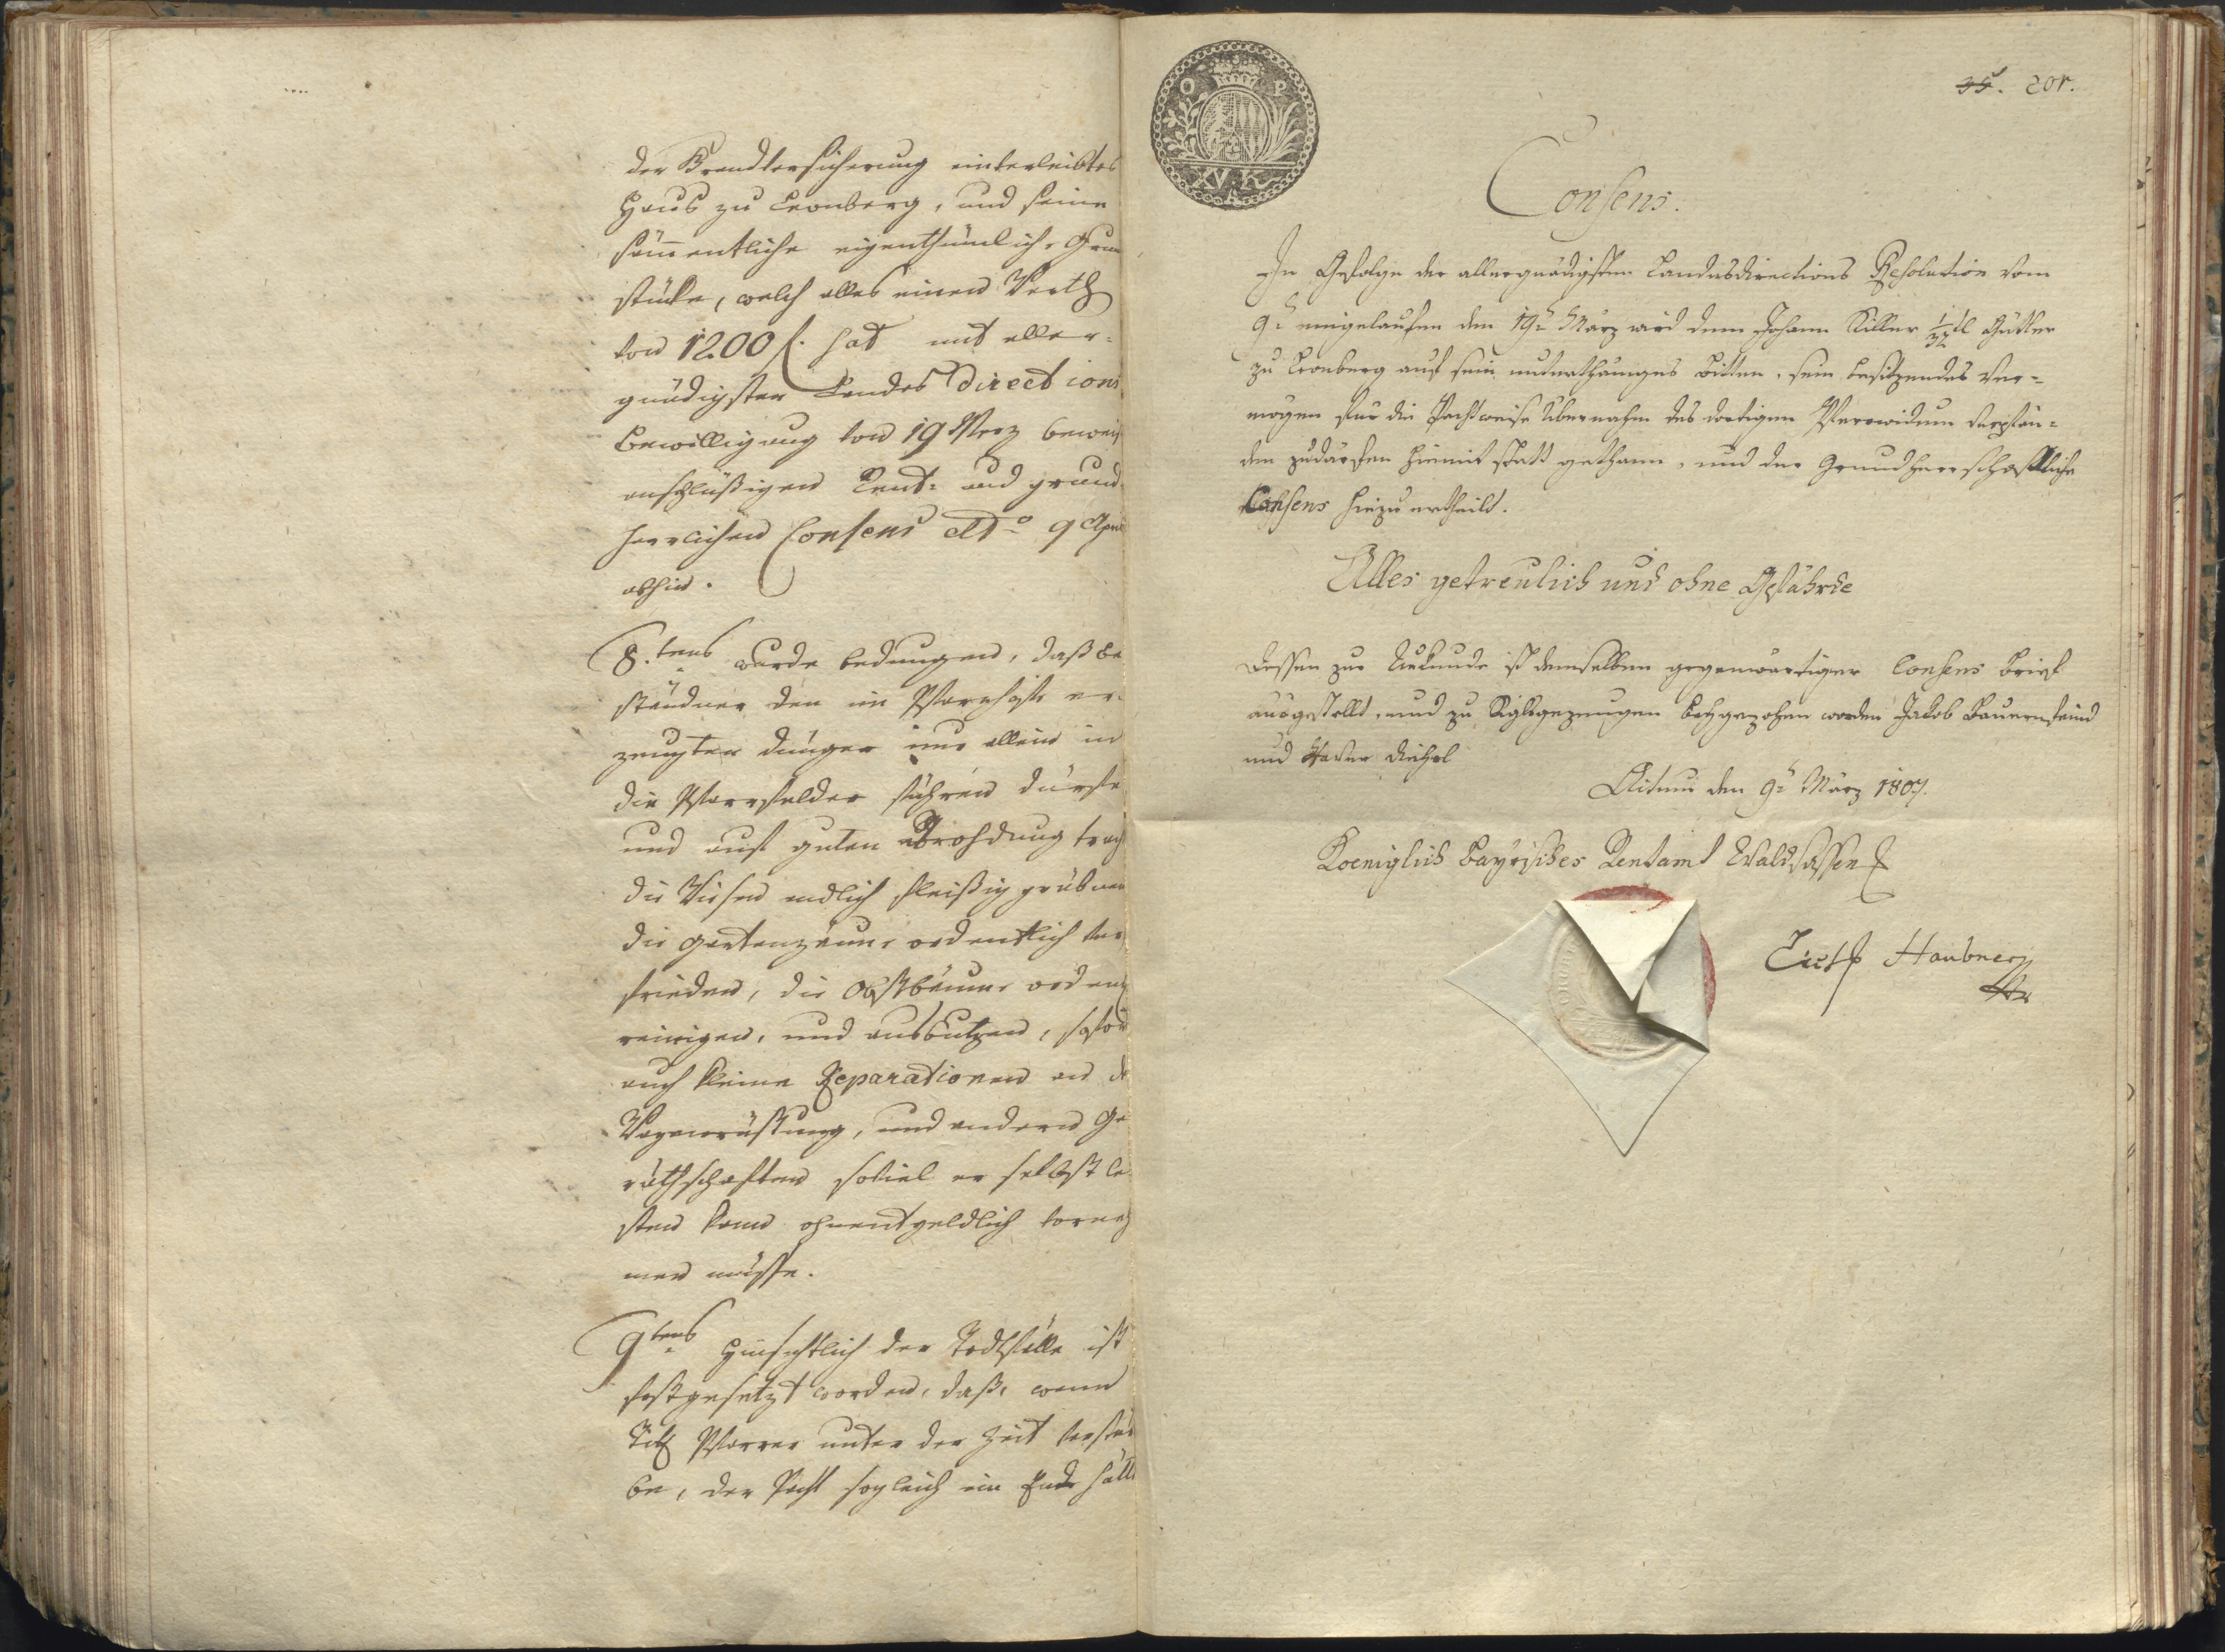 der Brandversicherung einverleibtes
Haus zu Leonberg, und seine
sämentliche eigenthümliche Grun
stücke, welch alles einen Werth
von 1200 f. hat mit aller-
gnädigster Landes Directions
Bewilligung von 19 Merz beweis
anschlüßigen Rent- und grund-
herrlichen Consens ddo 9 April
abhin.
8.tens wurde bedungen, daß Be
ständner den im Pfarrhofe er-
zeugten Dünger nur allein in
die Pfarrfelder führen dürfe
und auf guten
die Wiesen endlich fleißig
die Gartenzäune ordentlich ver
frieden, die Obstbäume ordentl
reinigen, und ausbutzen, sofort
auch kleine Reparationen an de
Wagenrüstung, und andern Ge
räthschaften soviel er selbst le
sten kann ohnentgeldlich vorneh
men müsse.
9tens Hinsichtlich der Todtfälle ist
festgesetzt worden, daß, wenn
Titl Pfarrer unter der Zeit verster
be, der Pacht sogleich ein Ende hätte
35. 201.
O P
XV K
Consens.
In Gefolge der allergnädigsten Landesdirections Resolution vom
9t eingelaufen den 19t März wird dem Johann Killer 1/32tl Gütler
zu Leonberg auf sein unterthäniges Bitten, sein besitzendes Ver-
mögen für die Pachtweise Übernahm des dortigen Pfarrwidum verpfän-
den zudärfen hiemit statt gethann, und der Grundherrschaftliche
Consens hiezu ertheilt.
Alles getreulich und ohne Gefährde
Dessen zur Urkunde ist demselben gegenwärtiger Consens Brief
ausgestellt, und zu Siglsgezeugen beygezohen worden Jakob Bauernfeind
und Xaver
Actum den 9t März 1807.
Koeniglich bayrisches Rentamt Waldsassen
Haubner